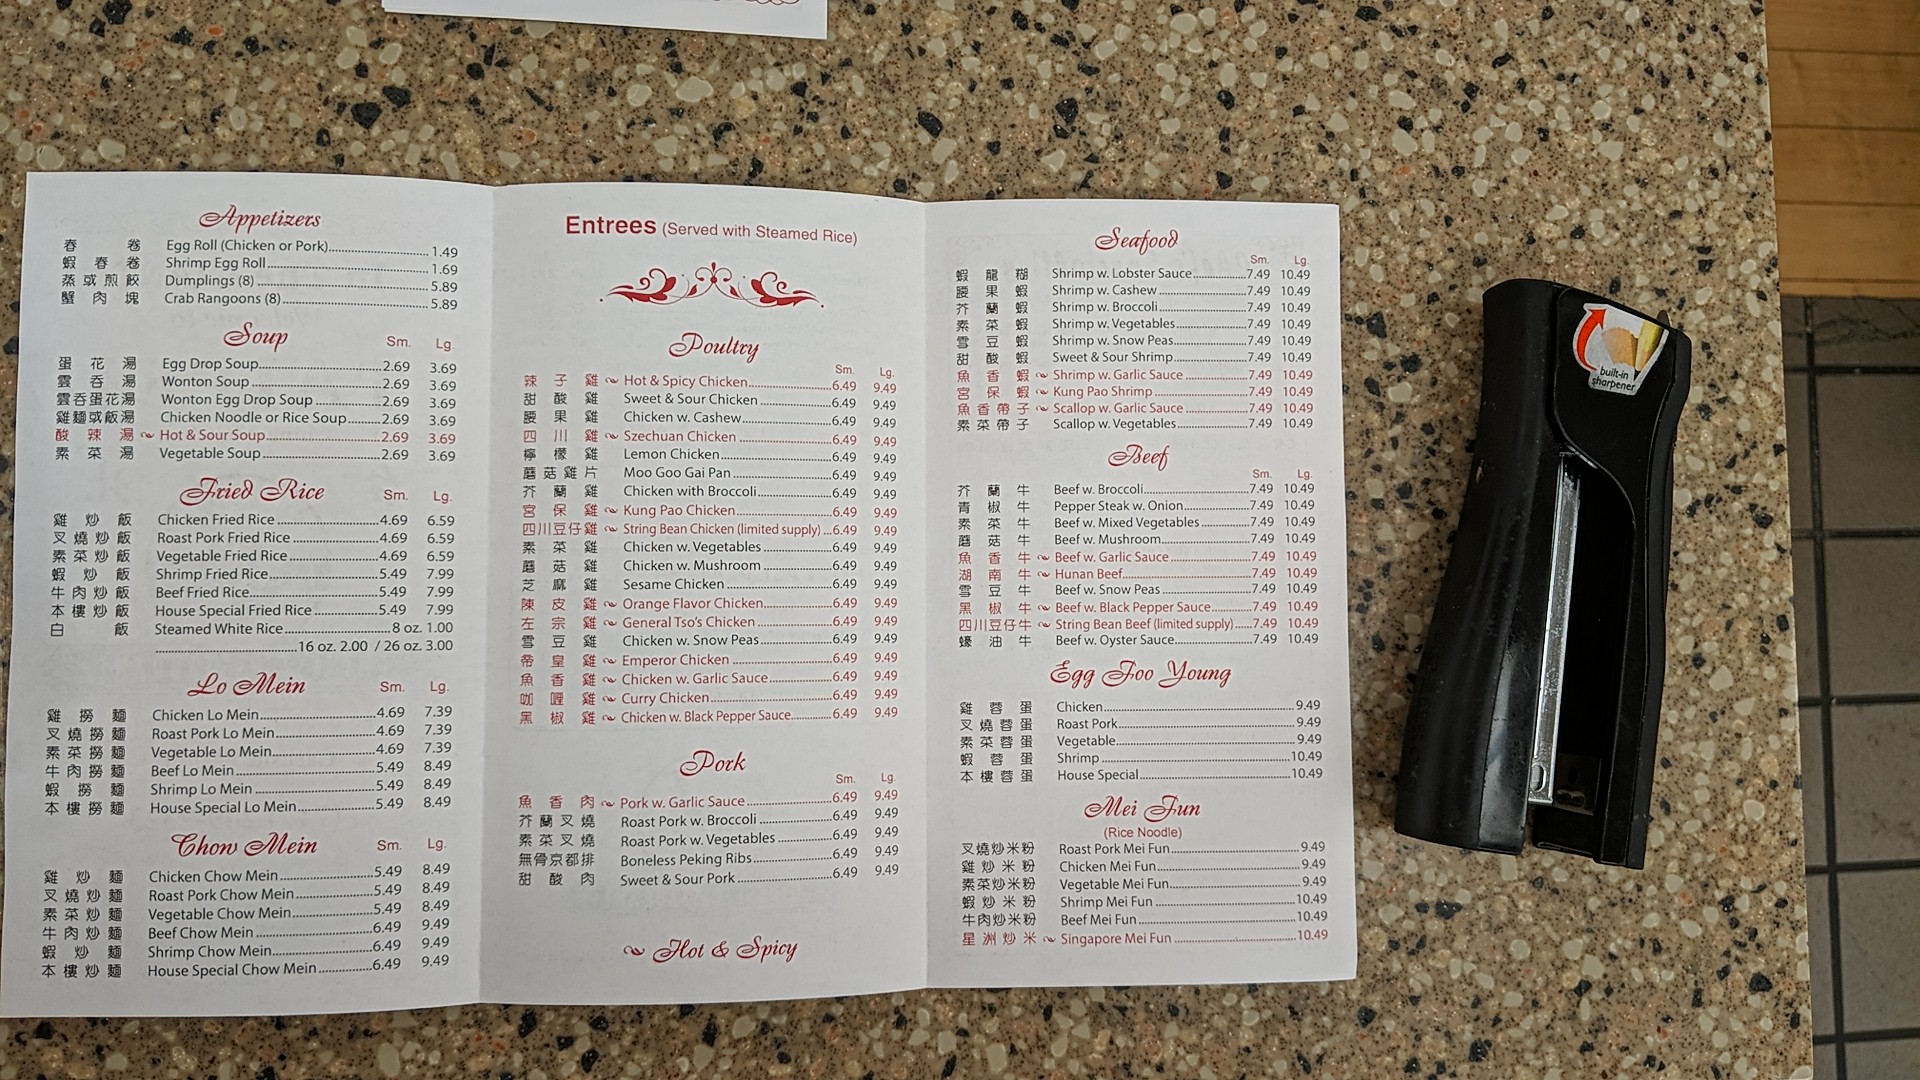 Appetizers
春 卷 Egg Roll (Chicken or Pork) 1.49
蝦春卷 Shrimp Egg Roll 1.69
蒸或煎餃 Dumplings (8) 5.89
蟹肉塊 Crab Rangoons (8) 5.89
Soup Sm. Lg.
蛋花湯 Egg Drop Soup 2.69 3.69
雲吞湯 Wonton Soup 2.69 3.69
雲吞蛋花湯 Wonton Egg Drop Soup 2.69 3.69
雞麵或飯湯 Chicken Noodle or Rice Soup 2.69 3.69
酸辣湯 Hot & Sour Soup 2.69 3.69
素菜湯 Vegetable Soup 2.69 3.69
Fried Rice Sm. Lg.
雞炒飯 Chicken Fried Rice 4.69 6.59
叉燒炒飯 Roast Pork Fried Rice 4.69 6.59
素菜炒飯 Vegetable Fried Rice 4.69 6.59
蝦炒飯 Shrimp Fried Rice 5.49 7.99
牛肉炒飯 Beef Fried Rice 5.49 7.99
本樓炒飯 House Special Fried Rice 5.49 7.99
白飯 Steamed White Rice 8 oz. 1.00
16 oz. 2.00 / 26 oz. 3.00
Lo Mein Sm. Lg.
雞撈麵 Chicken Lo Mein 4.69 7.39
叉燒撈麵 Roast Pork Lo Mein 4.69 7.39
素菜撈麵 Vegetable Lo Mein 4.69 7.39
牛肉撈麵 Beef Lo Mein 5.49 8.49
蝦撈麵 Shrimp Lo Mein 5.49 8.49
本樓撈麵 House Special Lo Mein 5.49 8.49
Chow Mein Sm. Lg.
雞炒麵 Chicken Chow Mein 5.49 8.49
叉燒炒麵 Roast Pork Chow Mein 5.49 8.49
素菜炒麵 Vegetable Chow Mein 5.49 8.49
牛肉炒麵 Beef Chow Mein 6.49 9.49
蝦炒麵 Shrimp Chow Mein 6.49 9.49
本樓炒麵 House Special Chow Mein 6.49 9.49
Entrees (Served with Steamed Rice)
Poultry
Sm. Lg.
辣子雞 Hot & Spicy Chicken 6.49 9.49
甜酸雞 Sweet & Sour Chicken 6.49 9.49
腰果雞 Chicken w. Cashew 6.49 9.49
四川雞 Szechuan Chicken 6.49 9.49
檸檬雞 Lemon Chicken 6.49 9.49
蘑菇雞片 Moo Goo Gai Pan 6.49 9.49
芥蘭雞 Chicken with Broccoli 6.49 9.49
宮保雞 Kung Pao Chicken 6.49 9.49
四川豆仔雞 String Bean Chicken (limited supply) 6.49 9.49
素菜雞 Chicken w. Vegetables 6.49 9.49
蘑菇雞 Chicken w. Mushroom 6.49 9.49
芝麻雞 Sesame Chicken 6.49 9.49
陳皮雞 Orange Flavor Chicken 6.49 9.49
左宗雞 General Tso's Chicken 6.49 9.49
雪豆雞 Chicken w. Snow Peas 6.49 9.49
帝皇雞 Emperor Chicken 6.49 9.49
魚香雞 Chicken w. Garlic Sauce 6.49 9.49
咖喱雞 Curry Chicken 6.49 9.49
黑椒雞 Chicken w. Black Pepper Sauce 6.49 9.49
Pork
Sm. Lg.
魚香肉 Pork w. Garlic Sauce 6.49 9.49
芥蘭叉燒 Roast Pork w. Broccoli 6.49 9.49
素菜叉燒 Roast Pork w. Vegetables 6.49 9.49
無骨京都排 Boneless Peking Ribs 6.49 9.49
甜酸肉 Sweet & Sour Pork 6.49 9.49
Hot & Spicy
Seafood
Sm. Lg.
蝦龍糊 Shrimp w. Lobster Sauce 7.49 10.49
腰果蝦 Shrimp w. Cashew 7.49 10.49
芥蘭蝦 Shrimp w. Broccoli 7.49 10.49
素菜蝦 Shrimp w. Vegetables 7.49 10.49
雪豆蝦 Shrimp w. Snow Peas 7.49 10.49
甜酸蝦 Sweet & Sour Shrimp 7.49 10.49
魚香蝦 Shrimp w. Garlic Sauce 7.49 10.49
宮保蝦 Kung Pao Shrimp 7.49 10.49
魚香帶子 Scallop w. Garlic Sauce 7.49 10.49
素菜帶子 Scallop w. Vegetables 7.49 10.49
Beef
Sm. Lg.
芥蘭牛 Beef w. Broccoli 7.49 10.49
青椒牛 Pepper Steak w. Onion 7.49 10.49
素菜牛 Beef w. Mixed Vegetables 7.49 10.49
蘑菇牛 Beef w. Mushroom 7.49 10.49
魚香牛 Beef w. Garlic Sauce 7.49 10.49
湖南牛 Hunan Beef 7.49 10.49
雪豆牛 Beef w. Snow Peas 7.49 10.49
黑椒牛 Beef w. Black Pepper Sauce 7.49 10.49
四川豆仔牛 String Bean Beef (limited supply) 7.49 10.49
蠔油牛 Beef w. Oyster Sauce 7.49 10.49
Egg Foo Young
雞蓉蛋 Chicken 9.49
叉燒蓉蛋 Roast Pork 9.49
素菜蓉蛋 Vegetable 9.49
蝦蓉蛋 Shrimp 10.49
本樓蓉蛋 House Special 10.49
Mei Fun
(Rice Noodle)
叉燒炒米粉 Roast Pork Mei Fun 9.49
雞炒米粉 Chicken Mei Fun 9.49
素菜炒米粉 Vegetable Mei Fun 9.49
蝦炒米粉 Shrimp Mei Fun 10.49
牛肉炒米粉 Beef Mei Fun 10.49
星洲炒米 Singapore Mei Fun 10.49
built-in
sharpener